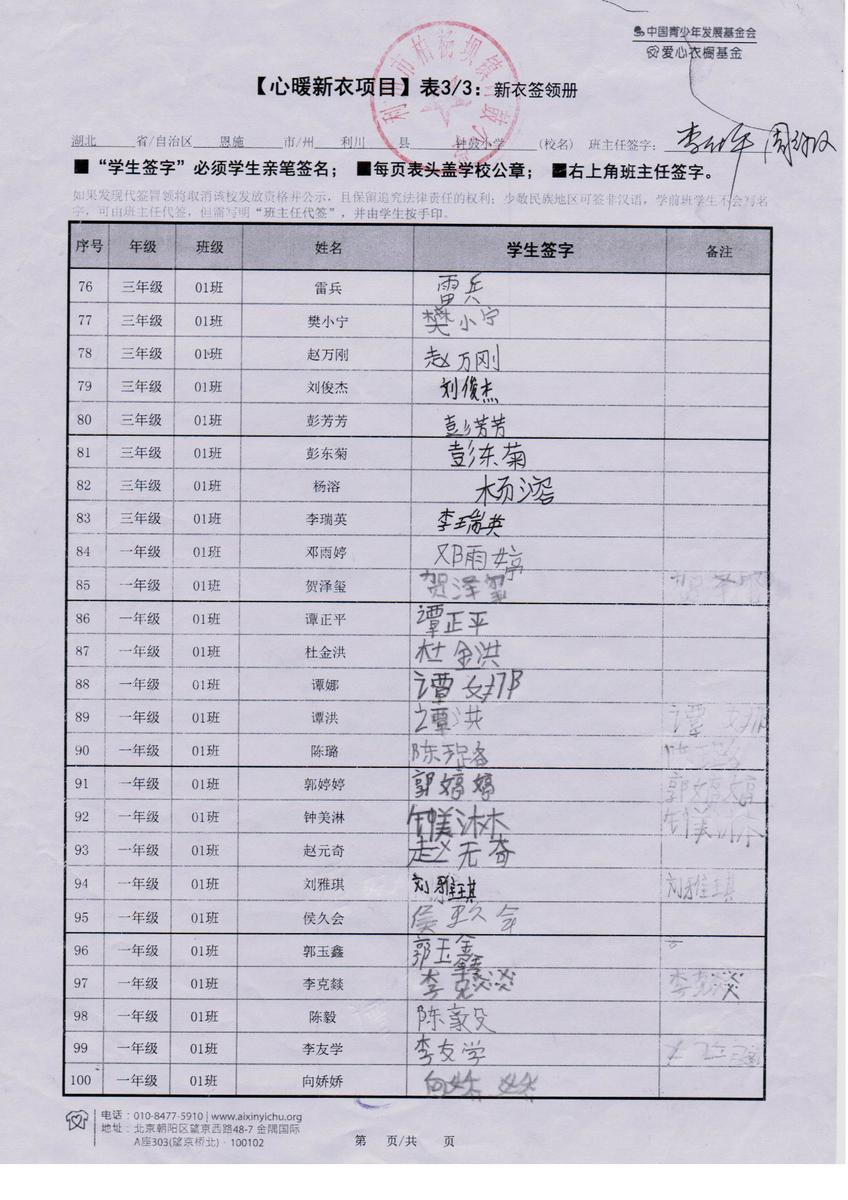 中国青少年发展基金会
爱心衣橱基金
【心暖新衣项目】表3/3：新衣签领册
湖北 省/自治区 恩施 市/州 利川 县 钟鼓小学 (校名) 班主任签字：
■“学生签字”必须学生亲笔签名；■每页表头盖学校公章；■右上角班主任签字。
如果发现代签冒领将取消该校发放资格并公示，且保留追究法律责任的权利；少数民族地区可签非汉语，学前班学生不会写名
字，可由班主任代签，但需写明“班主任代签”，并由学生按手印。
序号 年级 班级 姓名 学生签字 备注
76 三年级 01班 雷兵 雷兵
77 三年级 01班 樊小宁 樊小宁
78 三年级 01班 赵万刚 赵万刚
79 三年级 01班 刘俊杰 刘俊杰
80 三年级 01班 彭芳芳 彭芳芳
81 三年级 01班 彭东菊 彭东菊
82 三年级 01班 杨溶 杨溶
83 三年级 01班 李瑞英 李瑞英
84 一年级 01班 邓雨婷 邓雨婷
85 一年级 01班 贺泽玺 贺泽玺
86 一年级 01班 谭正平 谭正平
87 一年级 01班 杜金洪 杜金洪
88 一年级 01班 谭娜 谭娜
89 一年级 01班 谭洪 谭洪 谭娜
90 一年级 01班 陈璐 陈璐
91 一年级 01班 郭婷婷 郭婷婷 郭婷婷
92 一年级 01班 钟美淋 钟美淋 钟美淋
93 一年级 01班 赵元奇 赵无奇
94 一年级 01班 刘雅琪 刘雅琪 刘雅琪
95 一年级 01班 侯久会
96 一年级 01班 郭玉鑫 郭玉鑫
97 一年级 01班 李克燚 李克燚 李克燚
98 一年级 01班 陈毅 陈毅
99 一年级 01班 李友学 李友学
100 一年级 01班 向娇娇 向娇娇
电话：010-8477-5910 | www.aixinyichu.org
地址：北京朝阳区望京西路48-7 金隅国际
A座303(望京桥北)·100102
第 页/共 页